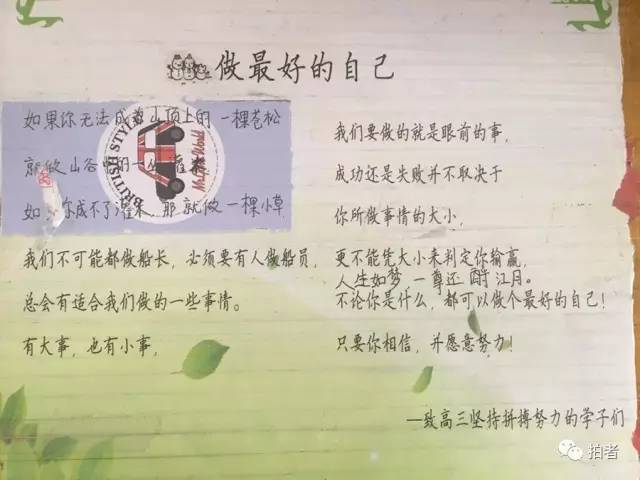 做最好的自己
如果你无法成为山顶上的一棵苍松
就做山谷中的一丛灌
如 你成不了灌木，那就做一棵小草
BRITISH STYLE
我们不可能都做船长，必须要有人做船员，
总会有适合我们做的一些事情。
有大事，也有小事，
我们要做的就是眼前的事，
成功还是失败并不取决于
你所做事情的大小，
更不能凭大小来判定你输赢，
人生如梦 一尊还酹江月。
不论你是什么，都可以做个最好的自己！
只要你相信，并愿意努力！
—致高三坚持拼搏努力的学子们
拍者